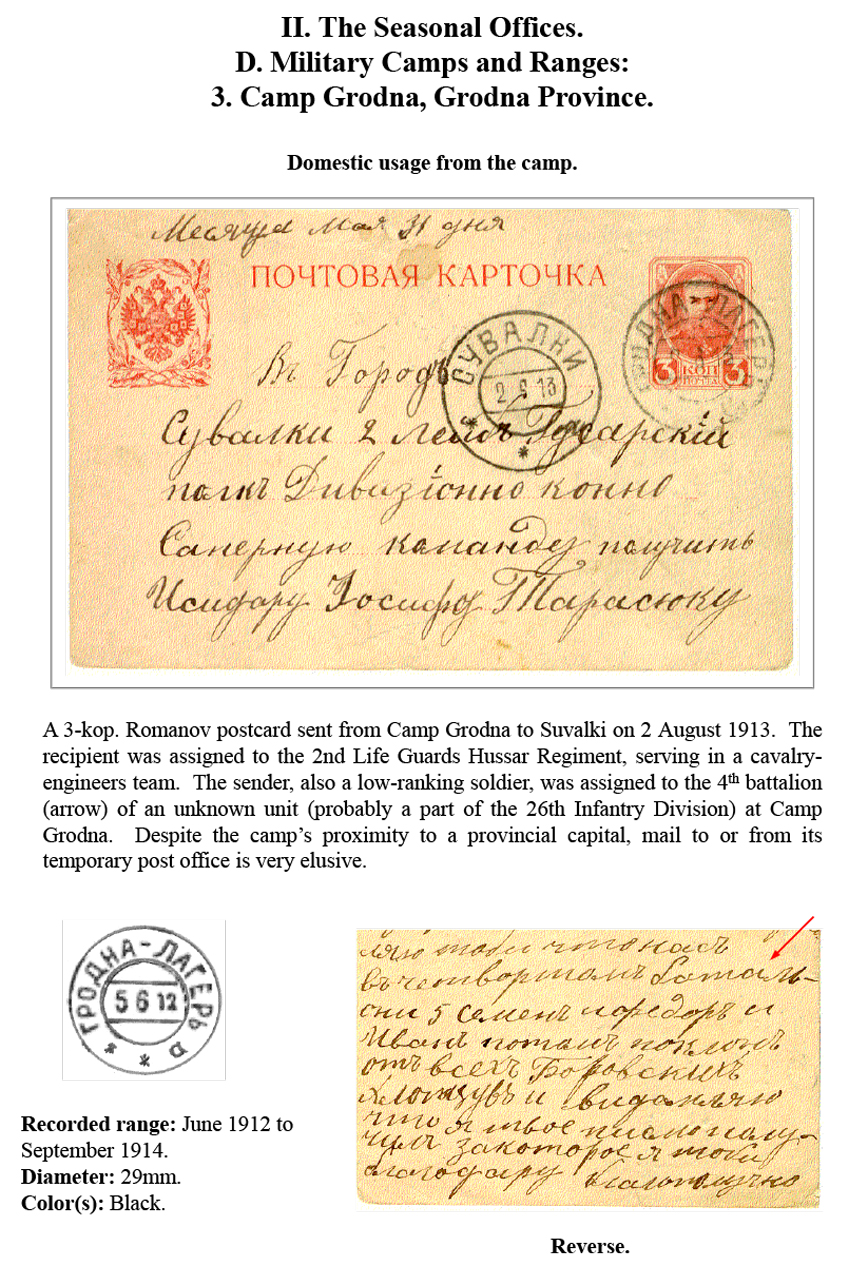 II. The Seasonal Offices.
D. Military Camps and Ranges:
3. Camp Grodna, Grodna Province.
Domestic usage from the camp.
Месяца Мая 31 дня
ПОЧТОВАЯ КАРТОЧКА
ГРОДНА-ЛАГЕРЬ
3 КОП 3
СУВАЛКИ
2 9 13
Въ Городъ
Сувалки 2 лейбъ Гусарскій
полкъ Дивизіонно конно
Саперную команду получить
Исидару Іосифу Тарасюку
A 3-kop. Romanov postcard sent from Camp Grodna to Suvalki on 2 August 1913. The
recipient was assigned to the 2nd Life Guards Hussar Regiment, serving in a cavalry-
engineers team. The sender, also a low-ranking soldier, was assigned to the 4th battalion
(arrow) of an unknown unit (probably a part of the 26th Infantry Division) at Camp
Grodna. Despite the camp's proximity to a provincial capital, mail to or from its
temporary post office is very elusive.
ГРОДНА-ЛАГЕРЬ
5 6 12
Recorded range: June 1912 to
September 1914.
Diameter: 29mm.
Color(s): Black.
что насъ
въ четвортомъ баталь-
они 5 семенъ и федоръ и
Иванъ потомъ поклонъ
отъ всехъ Боровскихъ
Хлопцувъ и
что я твое писмо полу-
чилъ за которое я тоби
благодару благополучно
Reverse.